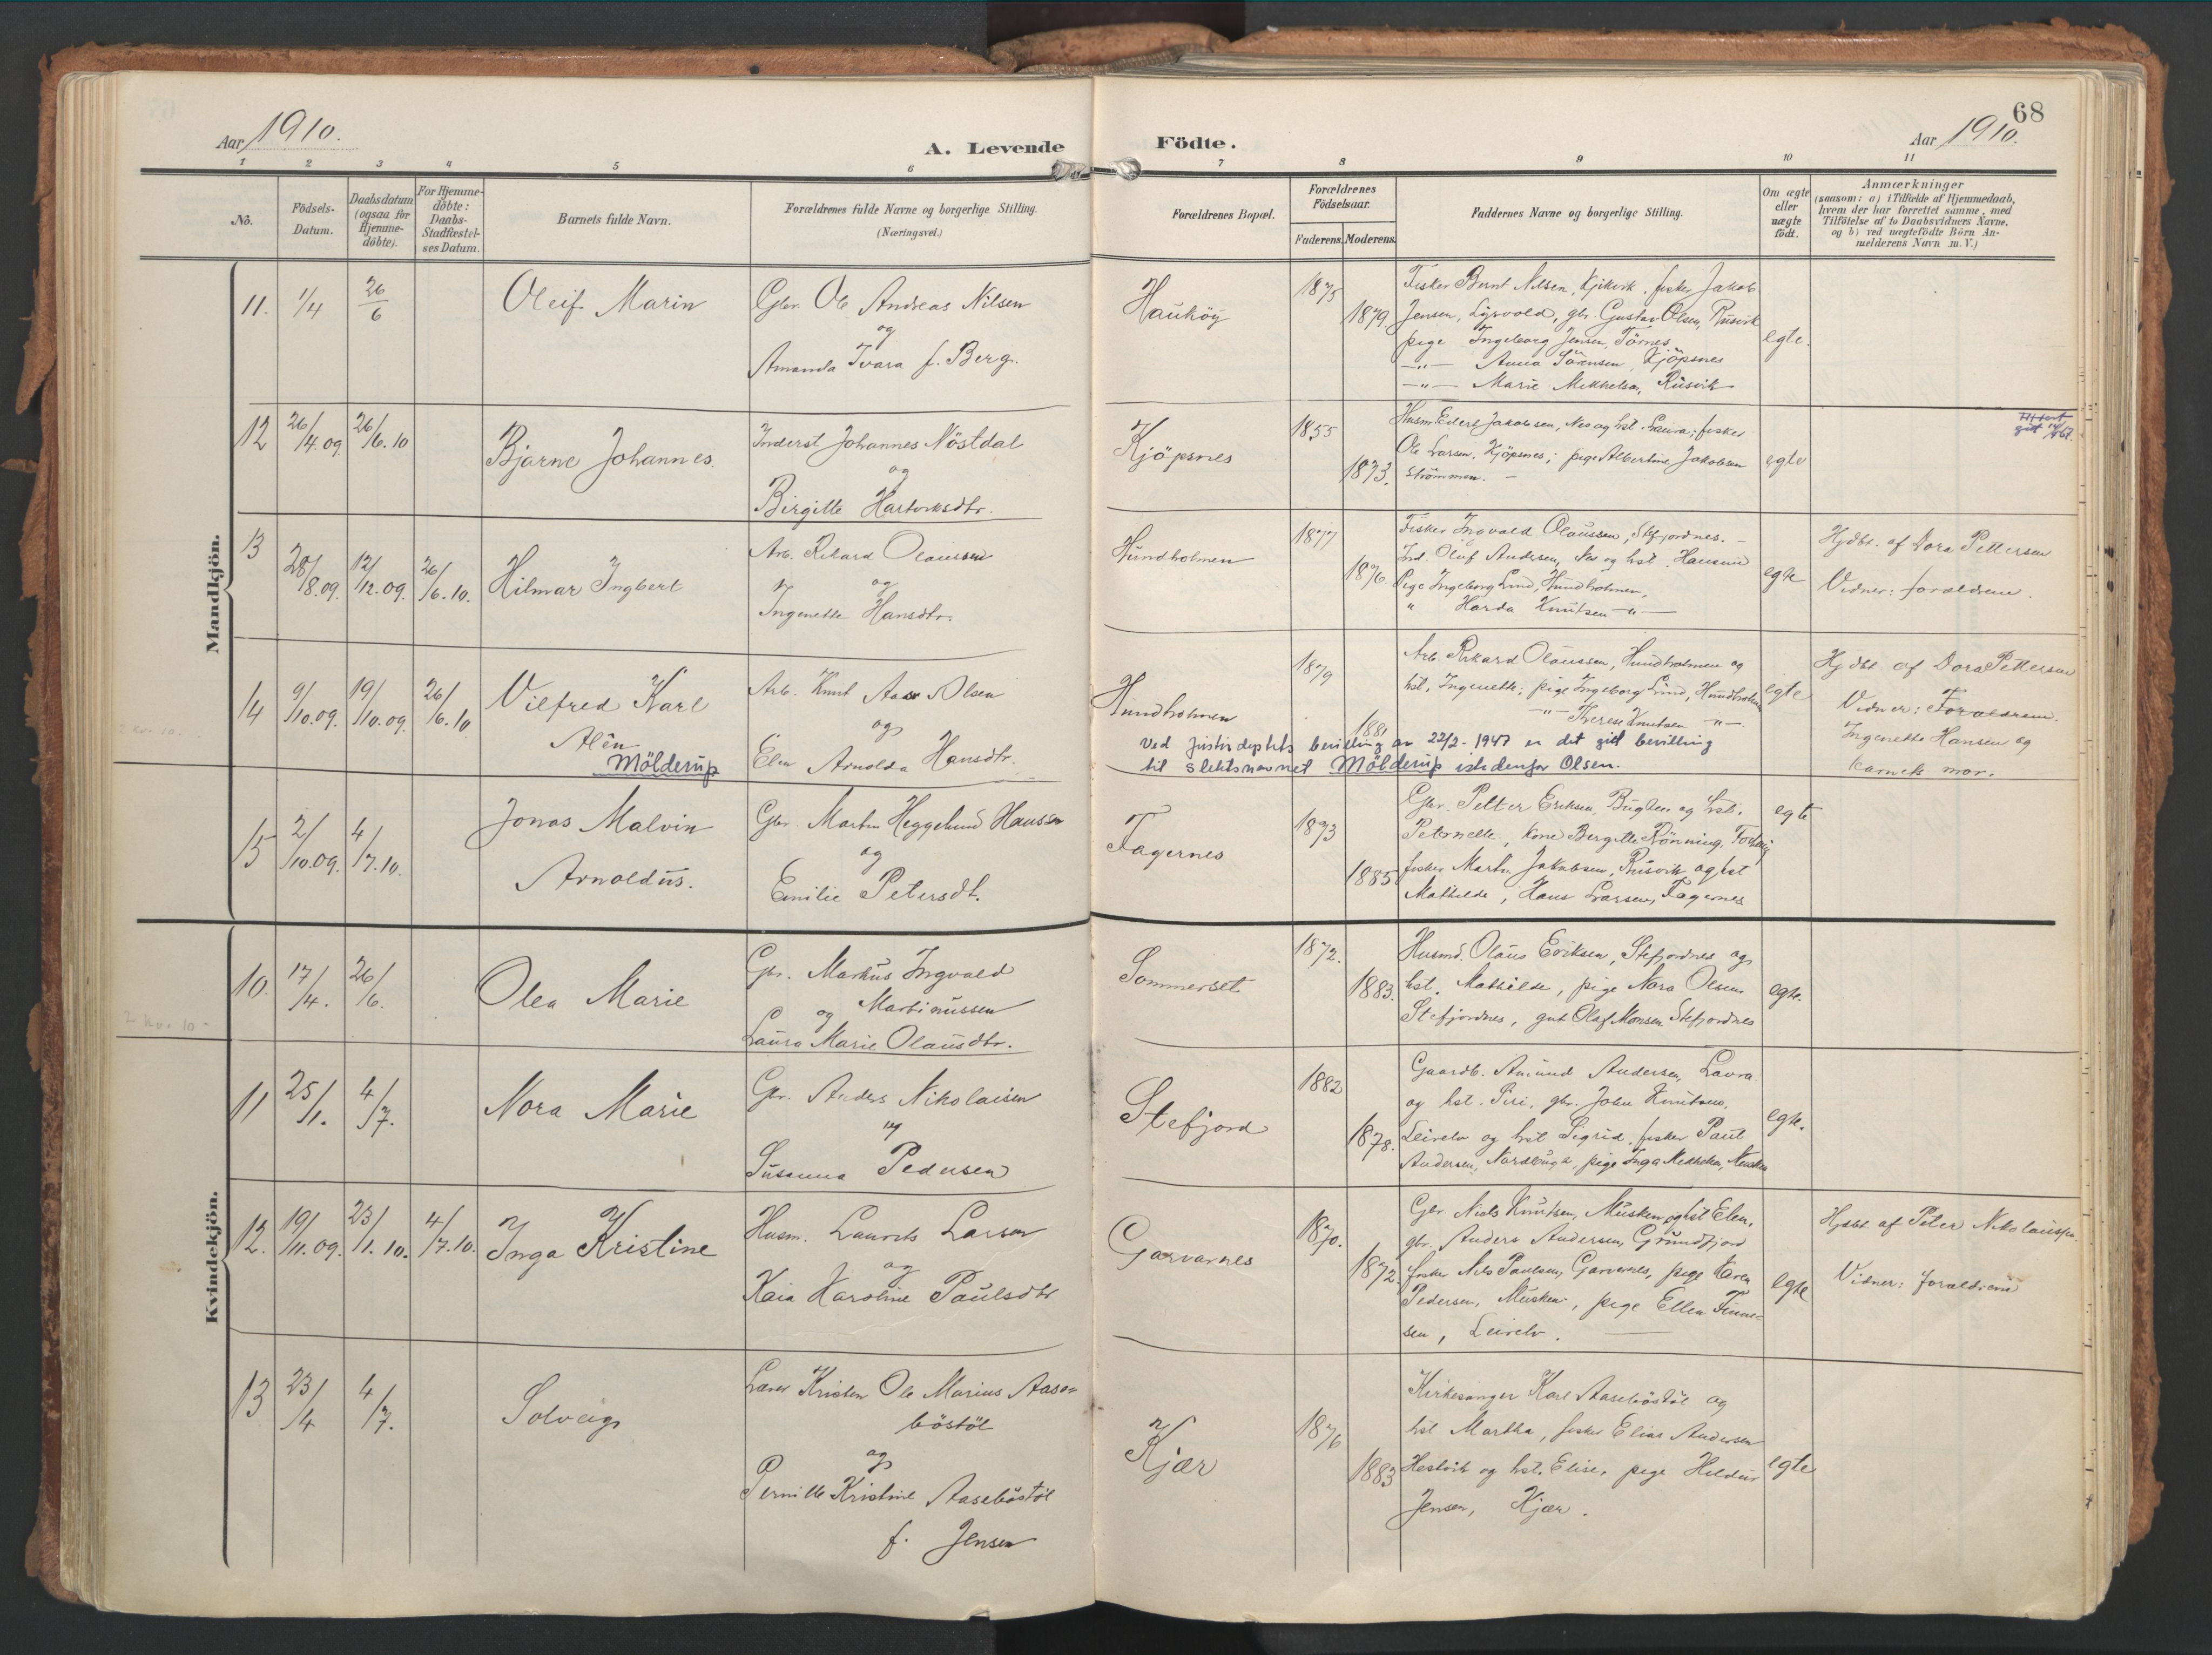 68
Aar 1910.
A. Levende Födte.
Aar 1910.
1 2 3 4 5 6 7 8 9 10 11
No.
Födsels-
Datum.
Daabsdatum
(ogsaa for
Hjemme-
döbte).
For Hjemme-
döbte:
Daabs-
Stadfæstel-
ses Datum.
Barnets fulde Navn.
Forældrenes fulde Navne og borgerlige Stilling.
(Næringsvei.)
Forældrenes Bopæl.
Forældrenes
Födselsaar.
Faderens. Moderens.
Faddernes Navne og borgerlige Stilling.
Om ægte
eller
uægte
födt.
Anmærkninger
(saasom: a) i Tilfælde af Hjemmedaab,
hvem der har forrettet samme, med
Tilföielse af to Daabsvidners Navne,
og b) ved uægtefödte Börn An-
melderens Navn m. V.)
Mandkjön.
11. 1/4 26/6 Oleif Marin
Gbr. Ole Andreas Nilsen
og
Amanda Tvara f. Berg.
Hauköy 1875 1879.
Fisker Bernt Nilsen, Kjikvik, fisker Jakob
Jensen, Lysvold, gbr. Gustav Olsen, Rusvik
pige Ingeborg Jensen, Törnes
—"— Anna Sörensen, Kjöpsnes
—"— Marie Mikkelsen, Rusvik
egte.
12 26/4.09. 26/6.10 Bjarne Johannes.
Inderst Johannes Nöstdal
og
Birgitte Hartviksdtr.
Kjöpsnes 1855 1873.
Husm. Edert Jakobsen, Nes og hst. Laura; fisker
Ole Larsen, Kjöpsnes; pige Albertine Jakobsen
Strömmen. —
egte
13 28/8.09. 12/12.09. 26/6.10. Hilmar Ingbert
Arb. Rikard Olaussen
og
Ingenette Hansdtr.
Hundholmen 1877 1876.
Fisker Ingvald Olaussen, Stefjordnes. —
Ind. Oluf Andersen, Nes og hst. Hansine
Pige Ingeborg Lind, Hundholmen,
" Harda Knutsen —"—
egte
Hjdbt. af Dora Pettersen
Vidner: forældrene.
14 9/10.09. 19/10.09. 26/6.10 Vilfred Karl
Alén
Mölderup
Arb. Knut Aase Olsen
og
Elen Arnolda Hansdtr.
Hundholmen 1879 1881
Arb. Rikard Olaussen, Hundholmen og
hst. Ingenette; pige Ingeborg Lind, Hundholmen
—"— Therese Knutsen —"—
egte
Hjdbt af Dora Pettersen
Vidner: Forældrene.
Ingenette Hansen og
barnets mor.
Ved Justisdeptets bevilling av 22/2-1947 er det gitt bevilling
til slektsnavnet Mölderup istedenfor Olsen.
15 2/10.09. 4/7.10. Jonas Malvin
Arnoldus.
Gbr. Martin Heggelund Hansen
og
Emilie Petersdt.
Fagernes 1873 1885
Gbr. Petter Eriksen, Bugten og hst.
Peternelle, kone Bergitte Rönning,
fisker Martin Jakobsen, Rusvik og hst
Mathilde, Hans Larsen, Fagernes
egte
Kvindekjön.
10. 17/4. 26/6. Olea Marie
Gbr. Markus Ingvald
og Martinussen
Laura Marie Olausdtr.
Sommerset 1872. 1883.
Husmd. Olaus Eriksen, Stefjordnes og
hst. Mathilde, pige Nora Olsen
Stefjordnes, gut Olaf Monsen Stefjordnes
egte.
11 25/1. 4/7. Nora Marie
Gbr. Anders Nikolaisen
og
Susanna Pedersen
Stefjord 1882 1878.
Gaardb. Amund Andersen, Lavra
og hst. Piri, gbr. John Knutsen,
Leirelv og hst Sigrid, fisker Paul
Andersen, Nordbugt, pige Inga Mikkelsen, Musken
egte.
12. 19/11.09. 23/1.10. 4/7.10. Inga Kristine
Husm. Laurits Larsen
og
Kaia Karoline Paulsdtr
Garvarnes 1870. 1872.
Gbr. Niels Knutsen, Musken og hst Elen,
gbr. Anders Andersen, Grundfjord
fisker Nils Paulsen, Garvernes, pige Karen
Pedersen, Musken, pige Ellen Finne-
sen, Leirelv.
egte
Hjdbt af Peter Nikolaisen.
Vidner: forældrene
13 23/4 4/7. Solveig
Lærer Kristen Ole Marius Aase-
böstöl
og
Pernille Kristine Aaseböstöl
f. Jensen
Kjær 1876 1883
Kirkesanger Karl Aaseböstöl og
hst Martha, fisker Elias Andersen
Hestvik og hst. Elise, pige Heldur
Jensen, Kjær.
egte